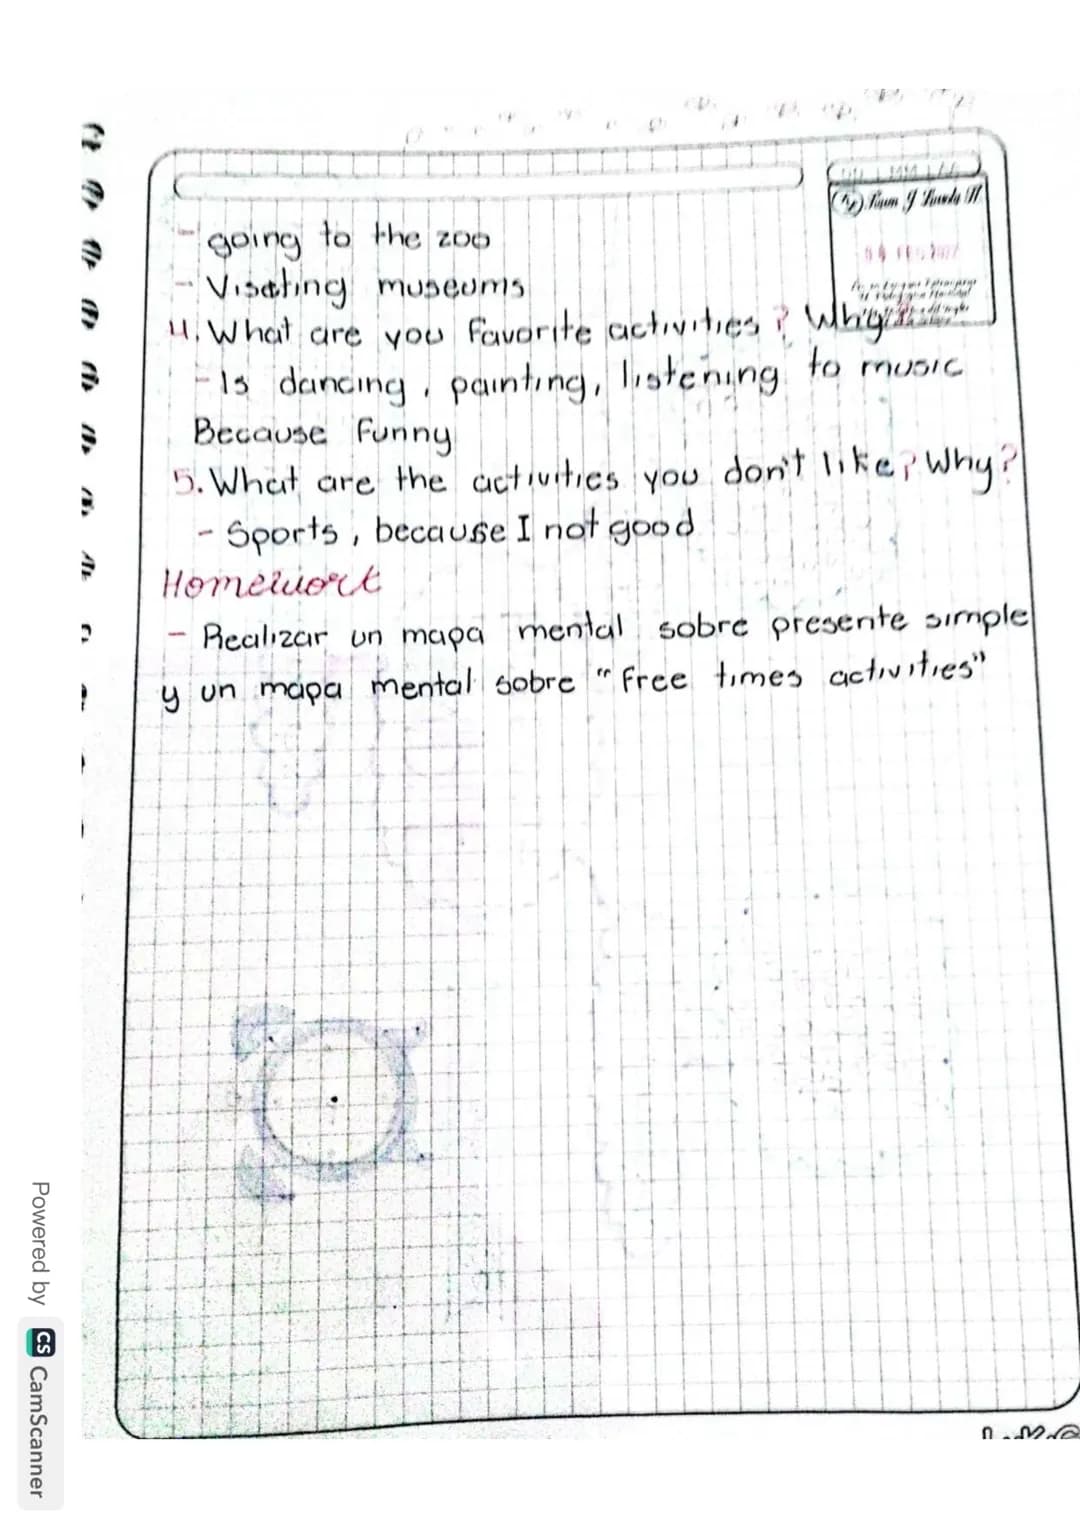 - going to the zoo
- Visating museums
4. What are you Favorite activities? Why?
- Is dancing, painting, listening to music
Because Funny
5. What are the activities you don't like? Why?
- Sports, because I not good
Homework
- Realizar un mapa mental sobre presente simple
y un mapa mental sobre "Free times activities"
Powered by CS CamScanner